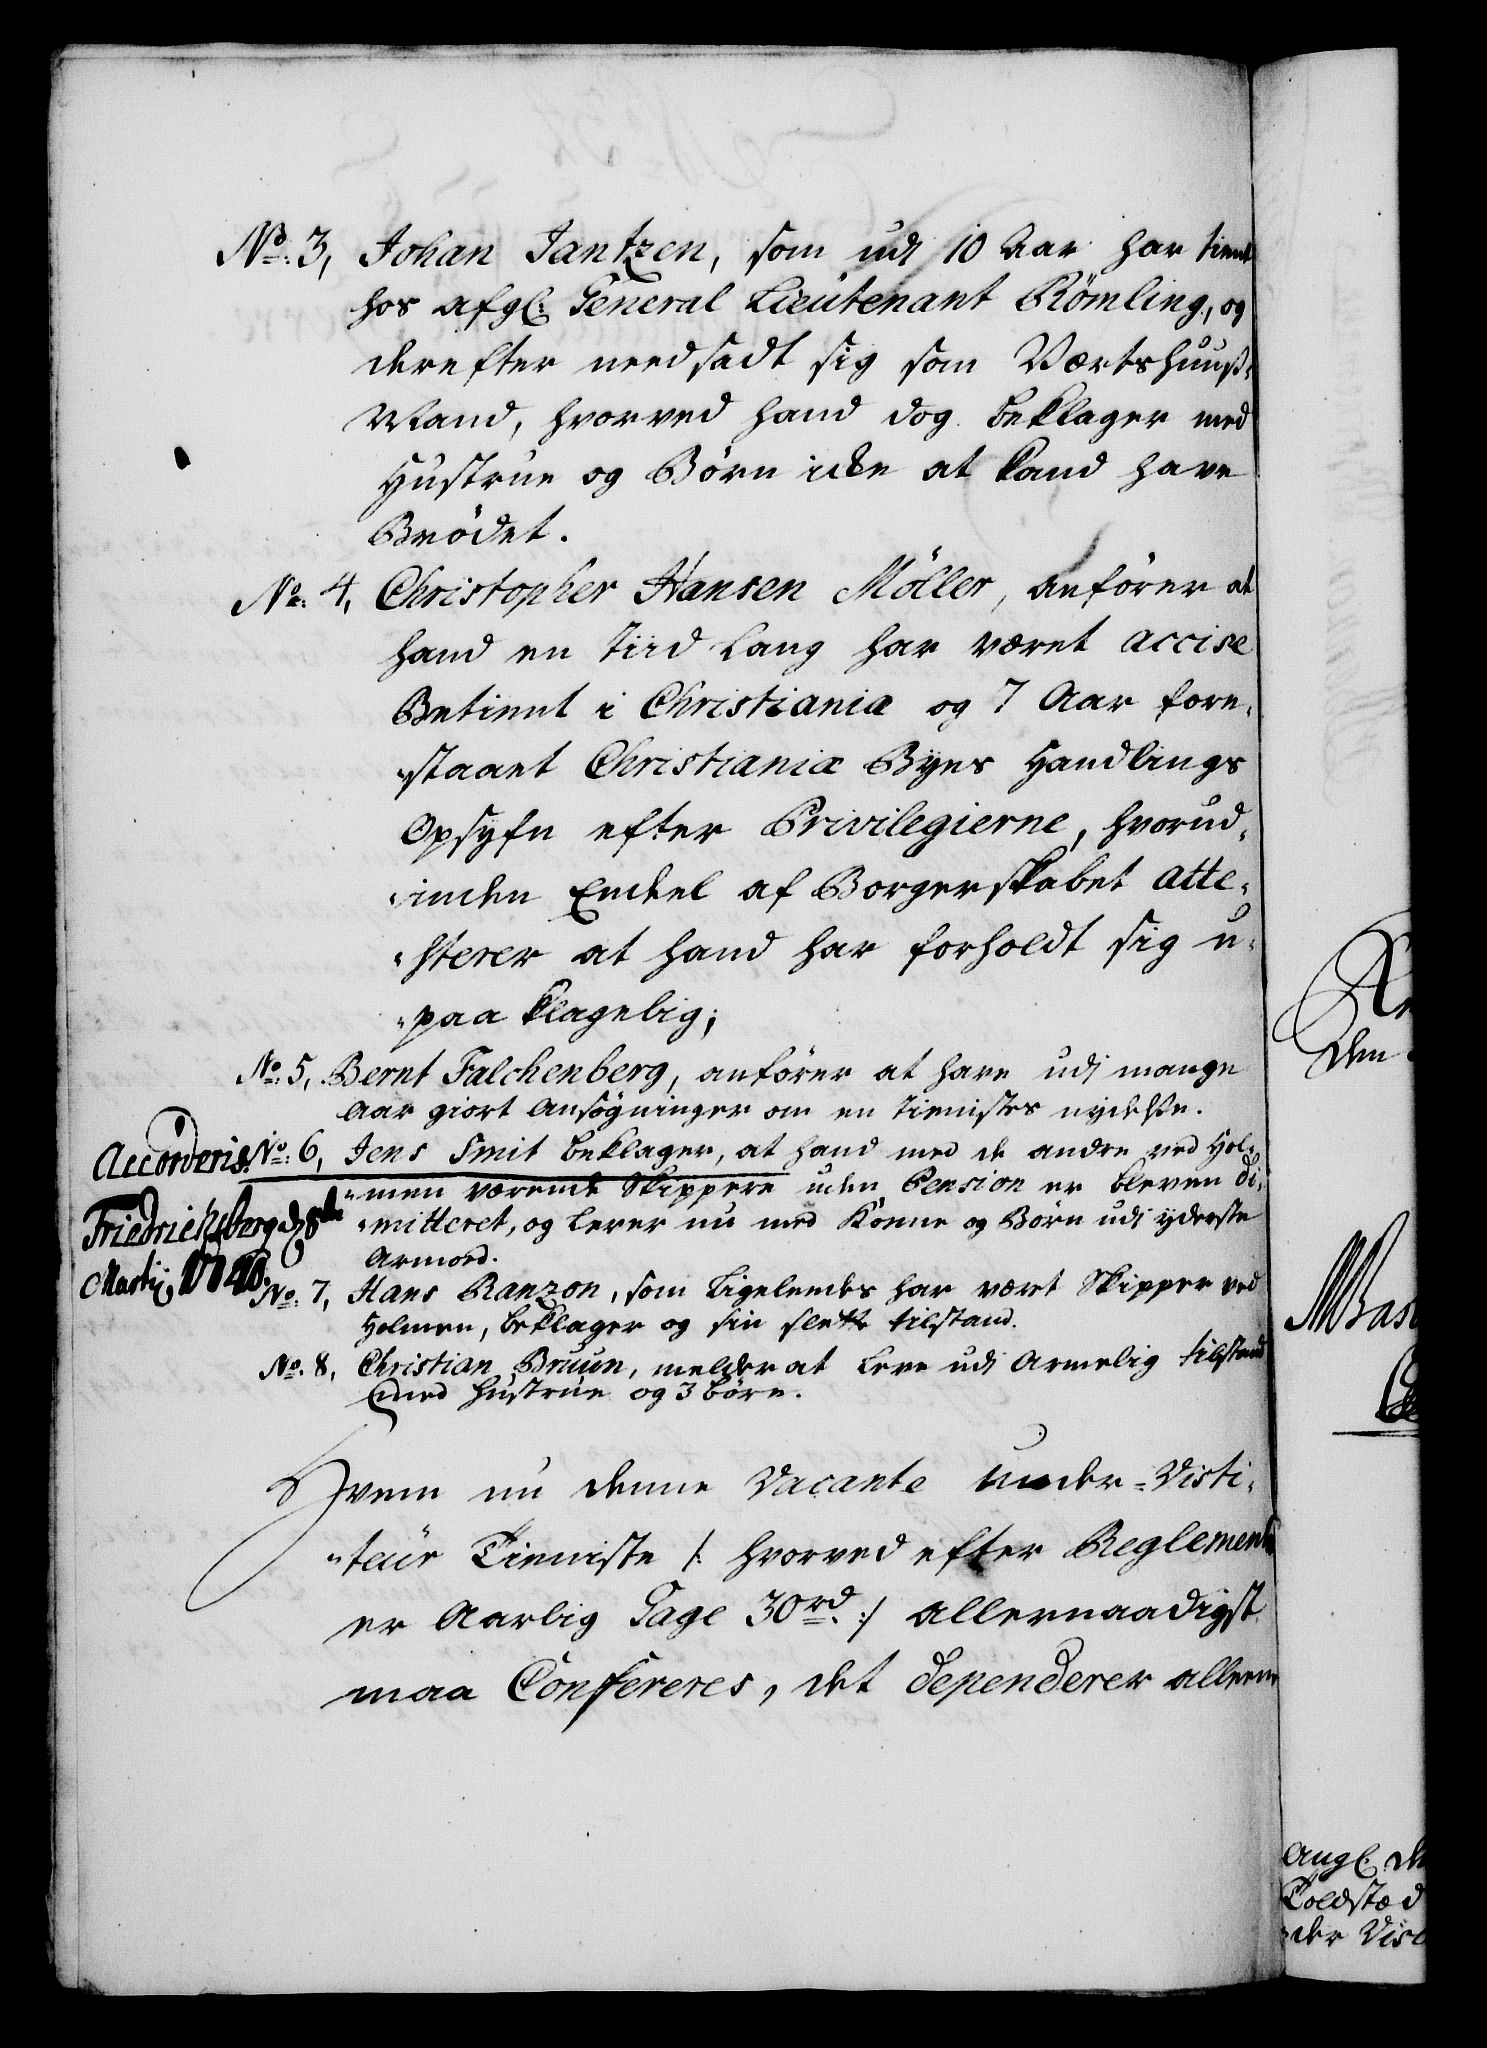 No. 3, Johan Jantzen, som udi 10 Aar har tient
hos afgl. General Lieutenant Römling, og
derefter needsadt sig som Værtshuuß-
Mand, hvorved hand dog beklager med
Hustrue og Børn icke at kand have
Brødet.
No. 4, Christopher Hansen Möller, anfører at
hand en Tiid lang har været accise
Betient i Christiania og 7 Aar fore-
-staaet Christianiæ Byes Handlings
Opsyfn efter Privilegierne, hvorud-
-inden Endel af Borgerskabet atte-
-sterer at hand har forholdt sig u-
-paaklagelig;
No. 5, Bernt Falchenberg, anfører at have udi mange
Aar giort Ansøgninger om en Tienistes nydelse.
No. 6, Jens Smit beklager, at hand med de andre ved Hol-
-men værende Skippere uden Pension er bleven di-
-mitteret, og lever nu med Konne og Børn udi yderste
Armod.
Accorderis.
Friedrichsberg d. 8de
Martij 1740.
No. 7, Hans Ranzon, som ligeledes har vært Skipper ved
Holmen, beklager og sin slette tilstand.
No. 8, Christian Bruun, melder at leve udi Armelig tilstand
med Hustrue og 3 børn.
Hvem nu denne Vacante Under-Visi-
-teur Tieniste /: hvorved efter Reglementet
er Aarlig Gage 30 rd. :/ allernaadigst
maa Confereres, det dependerer alleene
den
Angl. de
Toldsted
-der Visi